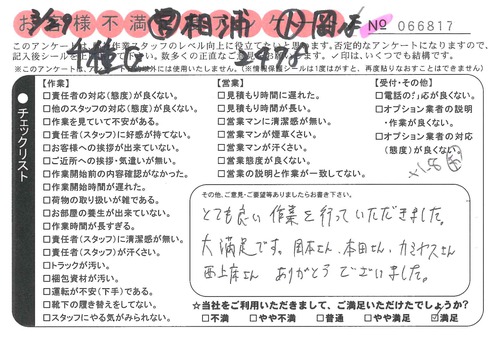 3/29 ㊞相浦
お客様不満足アンケート № 066817
このアンケートは、作業スタッフのレベル向上に役立てたいと思います。否定的なアンケートになりますので、
記入後シールを数多くの正直なご意見をお待ちしております。✓印は、いくつでも結構です。
※このアンケートは、使用いたしません。(※情報保護シールは1度はがすと、再度貼りなおすことはできません)
チェックリスト
【作業】
□責任者の対応(態度)が良くない。
□他のスタッフの対応(態度)が良くない。
□作業を見ていて不安がある。
□責任者(スタッフ)に好感が持てない。
□お客様への挨拶が出来ていない。
□ご近所への挨拶・気遣いが無い。
□作業開始前の内容確認がなかった。
□作業開始時間が遅れた。
□荷物の取り扱いが雑である。
□お部屋の養生が出来ていない。
□作業時間が長すぎる。
□責任者(スタッフ)に清潔感が無い。
□責任者(スタッフ)が汗くさい。
□トラックが汚い。
□梱包資材が汚い。
□運転が不安(下手)である。
□靴下の履き替えをしてない。
□スタッフにやる気がみられない。
【営業】
□見積もり時間に遅れた。
□見積もり時間が長い。
□営業マンに清潔感が無い。
□営業マンが煙草くさい。
□営業マンが汗くさい。
□営業態度が良くない。
□営業の説明と作業が一致してない。
【受付・その他】
□電話の対応が良くない。
□オプション業者の説明
・作業が良くない。
□オプション業者の対応
(態度)が良くない。
その他、ご意見・ご要望等ありましたらお書き下さい。
とても良い作業を行っていただきました。
大満足です。岡本さん、本田さん、カミヤスさん
西上床さん ありがとうございました。
☆当社をご利用いただきまして、ご満足いただけたでしょうか?
□不満 □やや不満 □普通 □やや満足 ☑満足